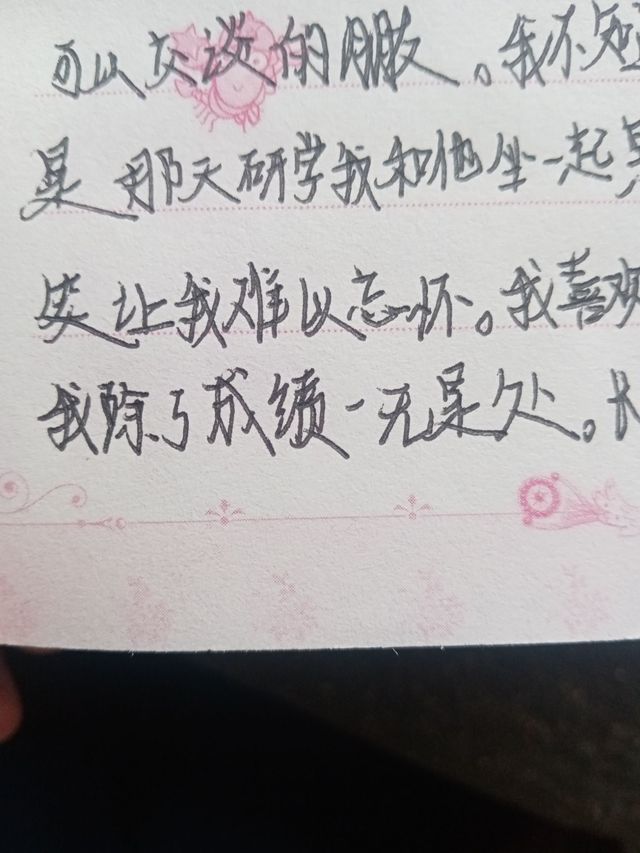 可以交谈的朋友。我不知
是那天研学我和他坐一起
实让我难以忘怀。我喜欢
我除了成绩一无是处。长